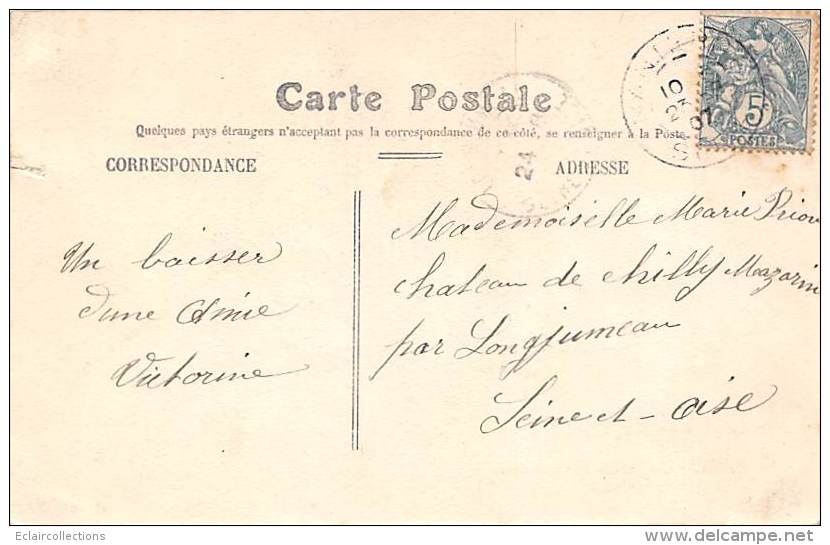 Carte Postale
Quelques pays étrangers n'acceptant pas la correspondance de ce côté, se renseigner à la Poste.
CORRESPONDANCE
ADRESSE
Un baisser
d'une Amie
Victorine
Mademoiselle Marie Priou
chateau de chilly Mazarin
par Longjumeau
Seine et - oise
5
POSTES
10
23
07
24
Eclaircollections
delcampe.net